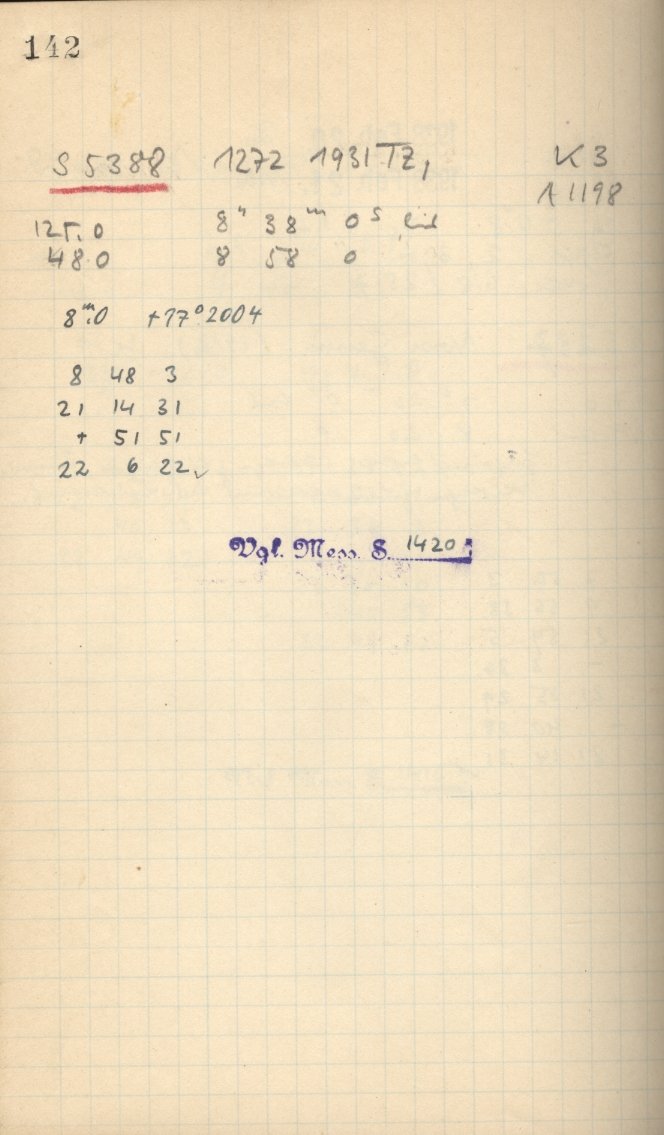 142
S 5388 1272 1931 TZ, K 3
A 1198
125.0 8ʰ 38ᵐ 0ˢ
48.0 8 58 0
8ᵐ.0 +17°2004
8 48 3
21 14 31
+ 51 51
22 6 22
Vgl. Mess. S. 1420